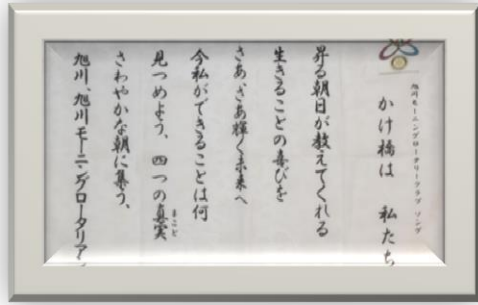 旭川モーニングロータリークラブ ソング
かけ橋は 私たち
昇る朝日が教えてくれる
生きることの喜びを
さあ、さあ輝く未来へ
今私ができることは何
見つめよう、四つの真実
まこと
さわやかな朝に集う、
旭川、旭川モーニングロータリアン